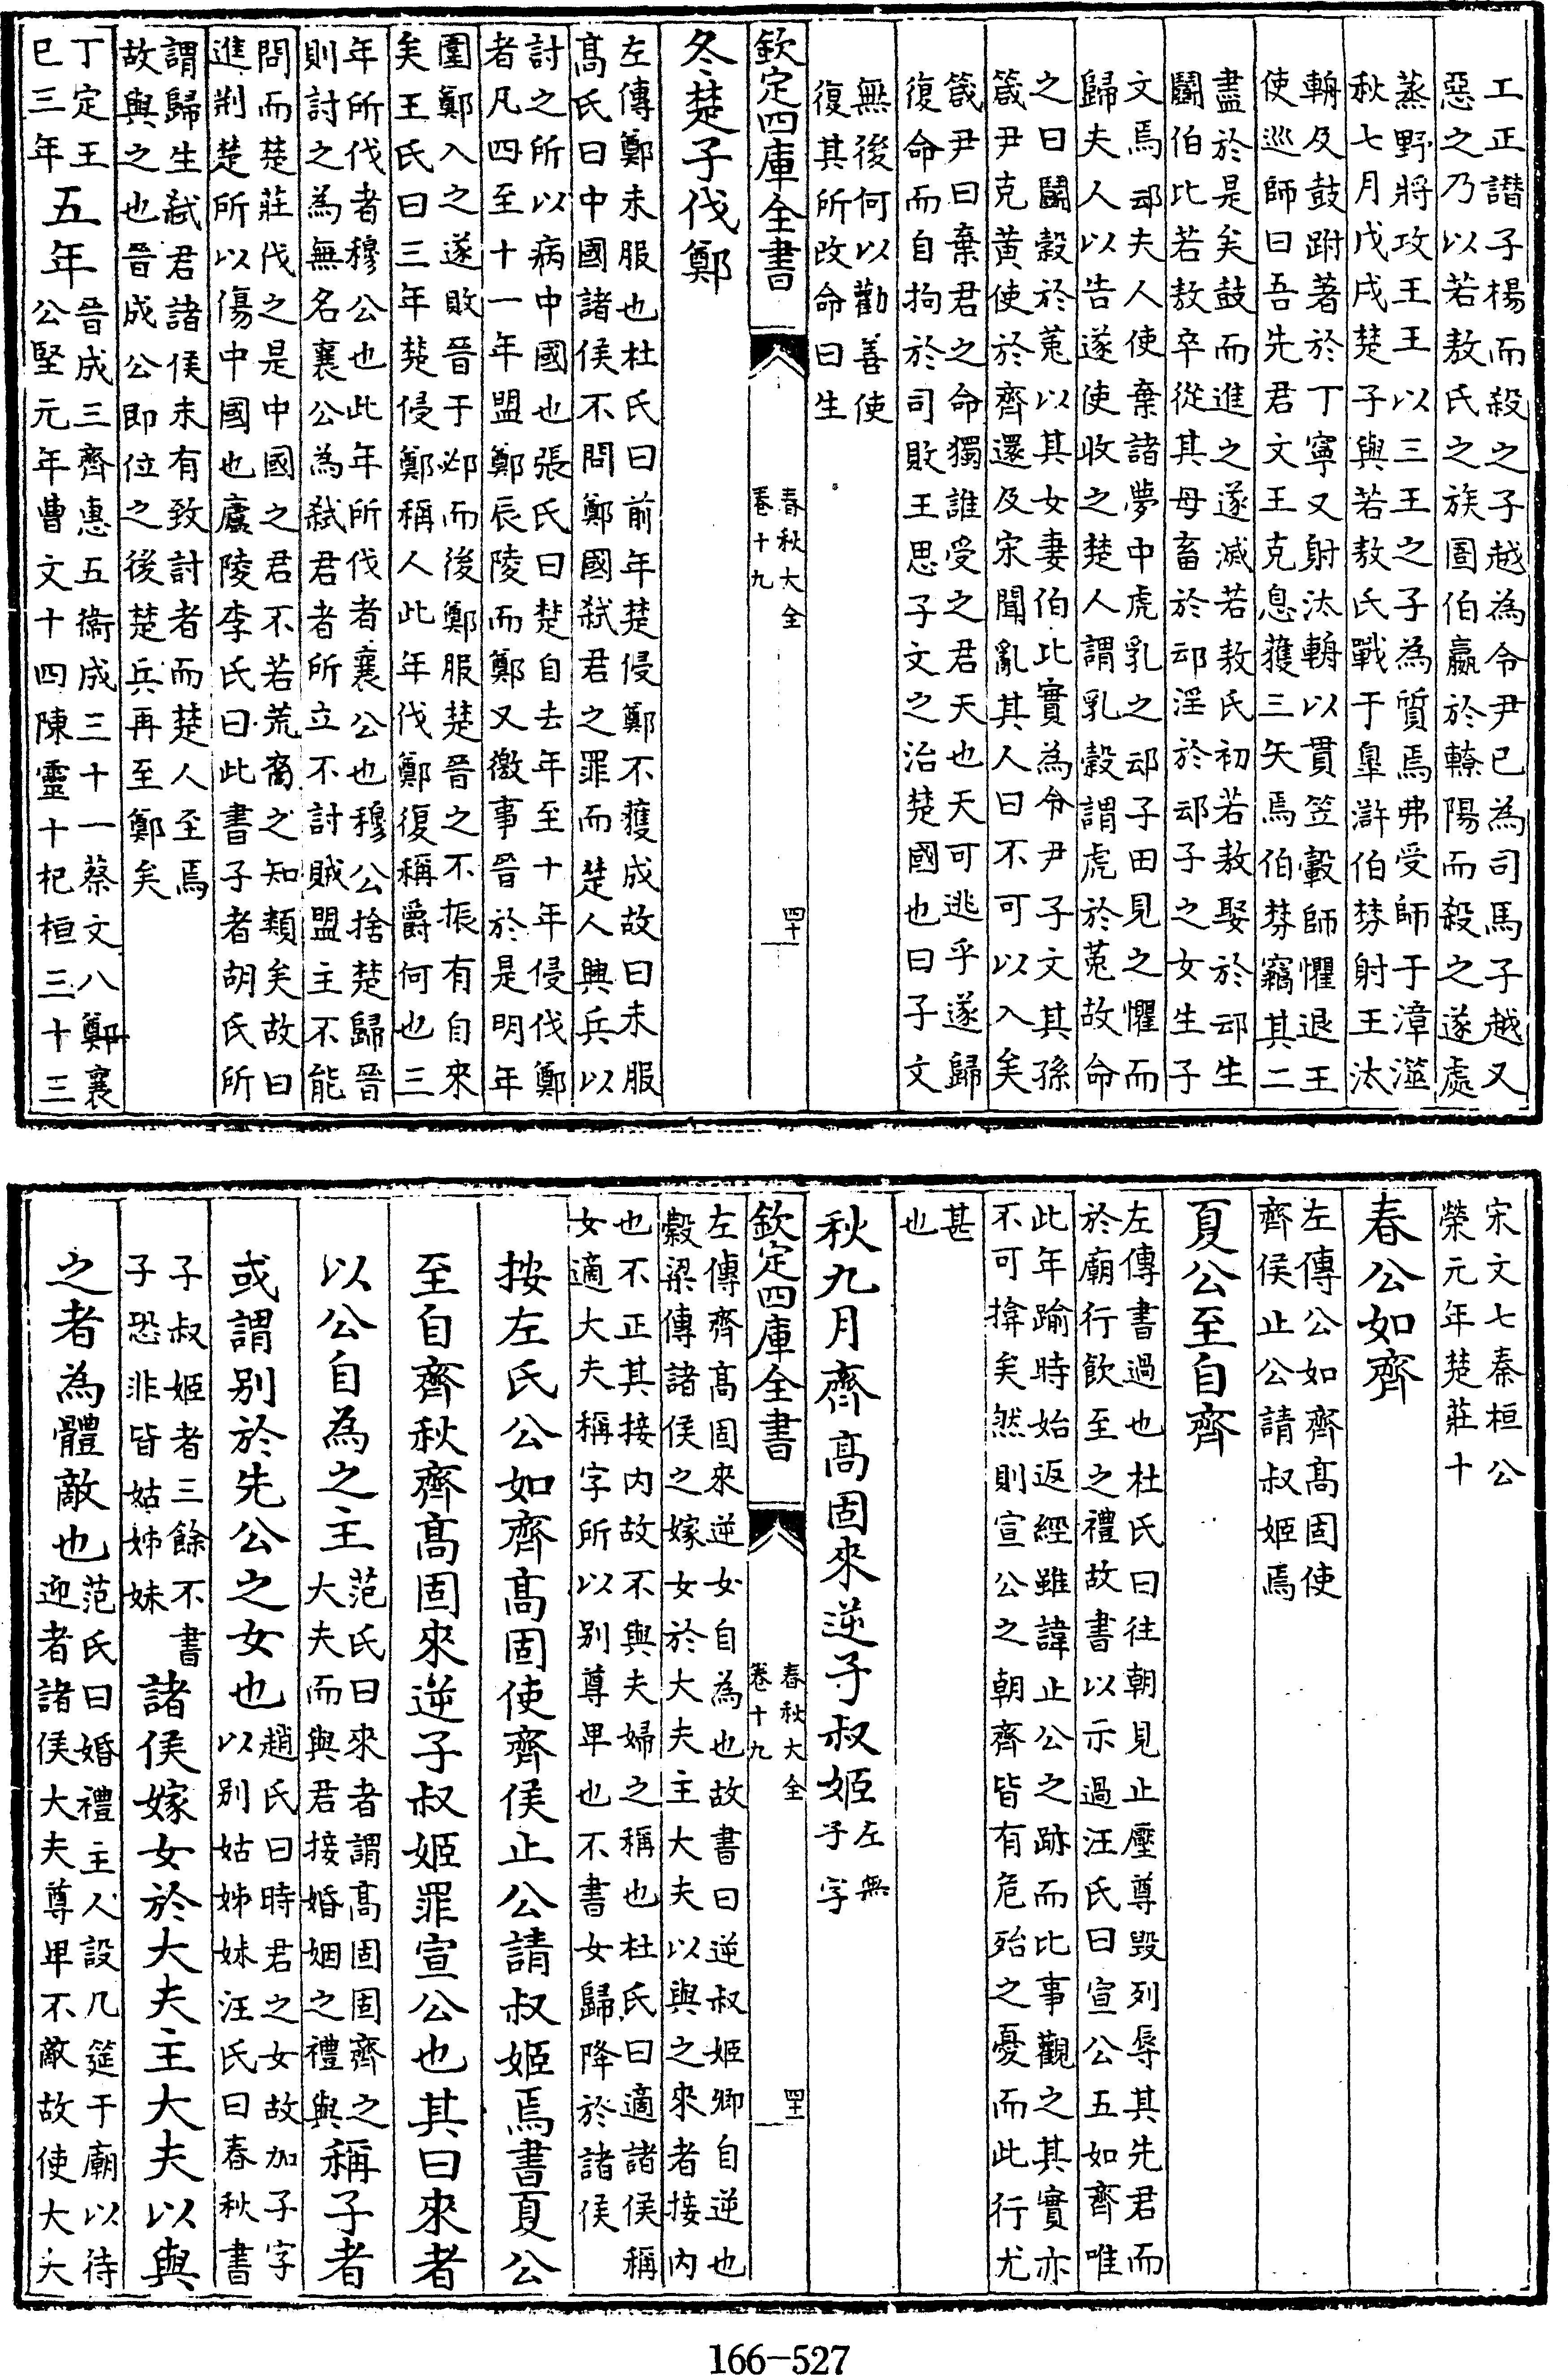 工正譖子楊而殺之子越為令尹已為司馬子越又
惡之乃以若敖氏之族圄伯嬴於轑陽而殺之遂處
蒸野將攻王王以三王之子為質焉弗受師于漳澨
秋七月戊戌楚子與若敖氏戰于皐滸伯棼射王汰
輈及鼓跗著於丁寧又射汰輈以貫笠轂師懼退王
使巡師曰吾先君文王克息獲三矢焉伯棼竊其二
盡於是矣鼓而進之遂滅若敖氏初若敖娶於䢵生
鬬伯比若敖卒從其母畜於䢵淫於䢵子之女生子
文焉䢵夫人使棄諸夢中虎乳之䢵子田見之懼而
歸夫人以告遂使收之楚人謂乳穀謂虎於菟故命
之曰鬬穀於菟以其女妻伯比實為令尹子文其孫
箴尹克黃使於齊還及宋聞亂其人曰不可以入矣
箴尹曰棄君之命獨誰受之君天也天可逃乎遂歸
復命而自拘於司敗王思子文之治楚國也曰子文
無後何以勸善使
復其所改命曰生
欽定四庫全書
春秋大全
卷十九
四十
冬楚子伐鄭
左傳鄭未服也杜氏曰前年楚侵鄭不獲成故曰未服
髙氏曰中國諸侯不問鄭國弑君之罪而楚人興兵以
討之所以病中國也張氏曰楚自去年至十年侵伐鄭
者凡四至十一年盟鄭辰陵而鄭又徼事晉於是明年
圍鄭入之遂敗晉于邲而後鄭服楚晉之不振有自來
矣王氏曰三年楚侵鄭稱人此年伐鄭復稱爵何也三
年所伐者穆公也此年所伐者襄公也穆公捨楚歸晉
則討之為無名襄公為弑君者所立不討賊盟主不能
問而楚莊伐之是中國之君不若荒裔之知類矣故曰
進荆楚所以傷中國也廬陵李氏曰此書子者胡氏所
謂歸生弑君諸侯未有致討者而楚人至焉
故與之也晉成公即位之後楚兵再至鄭矣
丁定王
巳三年
五年
晉成三齊惠五衞成三十一蔡文八鄭襄
公堅元年曹文十四陳靈十杞桓三十三
宋文七秦桓公
榮元年楚莊十
春公如齊
左傳公如齊髙固使
齊侯止公請叔姬焉
夏公至自齊
左傳書過也杜氏曰往朝見止壓尊毁列辱其先君而
於廟行飲至之禮故書以示過汪氏曰宣公五如齊唯
此年踰時始返經雖諱止公之跡而比事觀之其實亦
不可揜矣然則宣公之朝齊皆有危殆之憂而此行尤
甚
也
秋九月齊髙固來逆子叔姬
左無
子字
欽定四庫全書
春秋大全
卷十九
四十一
左傳齊髙固來逆女自為也故書曰逆叔姬卿自逆也
穀梁傳諸侯之嫁女於大夫主大夫以與之來者接内
也不正其接内故不與夫婦之稱也杜氏曰適諸侯稱
女適大夫稱字所以别尊卑也不書女歸降於諸侯
按左氏公如齊髙固使齊侯止公請叔姬焉書夏公
至自齊秋齊髙固來逆子叔姬罪宣公也其曰來者
以公自為之主
范氏曰來者謂髙固固齊之
大夫而與君接婚姻之禮與
稱子者
或謂别於先公之女也
趙氏曰時君之女故加子字
以别姑姊妹汪氏曰春秋書
子叔姬者三餘不書
子恐非皆姑姊妹
諸侯嫁女於大夫主大夫以與
之者為體敵也
范氏曰婚禮主人設几筵于廟以待
迎者諸侯大夫尊卑不敵故使大夫
166-527